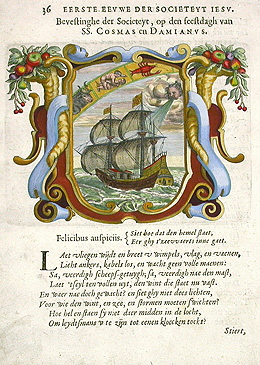 36 EERSTE EEUWE DER SOCIETEYT IESV.
Bevestinghe der Societeyt, op den feestdagh van
SS. COSMAS en DAMIANVS.
Felicibus auspiciis.
Siet hoe dat den hemel staet,
Eer ghy t'zeewaerts inne gaet.
LAet vliegen wijdt en breet u wimpels, vlag, en veenen,
Licht ankers, kabels los, en wacht geen volle maenen:
Sa, veerdigh scheeps-getuygh; sa, veerdigh nae den mast,
Laet t'seyl ten vollen uyt, den wint die staet nu vast.
En waer nae doch gewacht? en siet ghy niet dees lichten,
Voor wie den wint, en zee, en stormen moeten swichten?
Hoe hel en staen sy niet daer midden in de locht,
Om leydtsmans u te zijn tot eenen kloecken tocht?
Stiert,